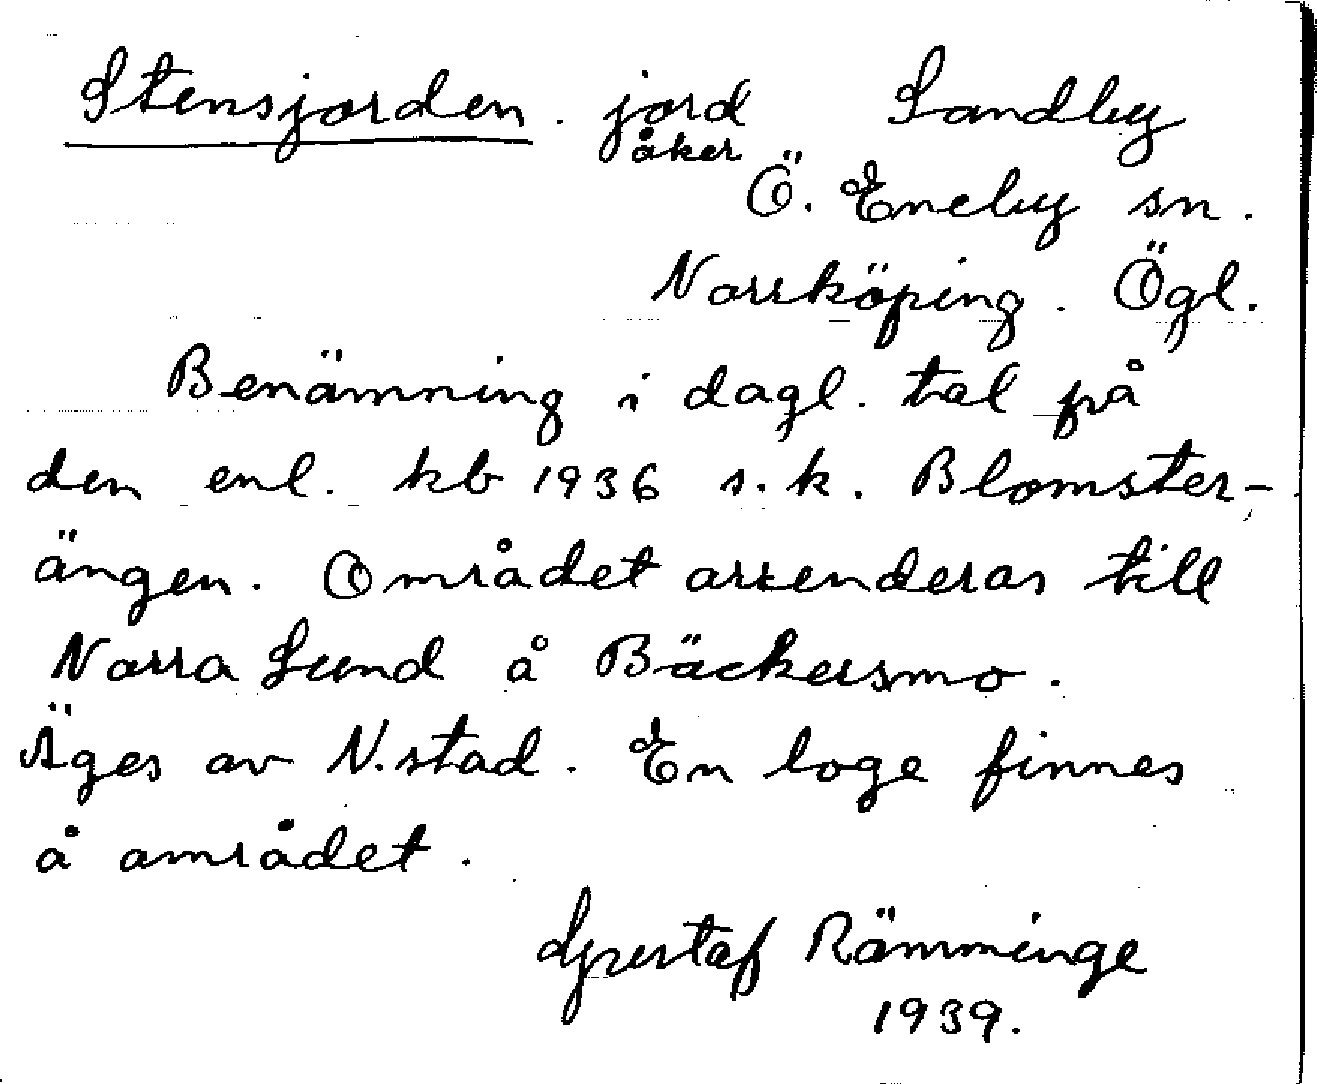 Stensjorden. jord Sandby
åker
Ö. Eneby sn.
Norrköping. Ögl.
Benämning i dagl. tal på
den enl. kb 1936 s.k. Blomster-
ängen. Området arrenderas till
Norra Lund å Bäckersmo.
Äges av N.stad. En loge finnes
å området.
Gustaf Rämminge
1939.